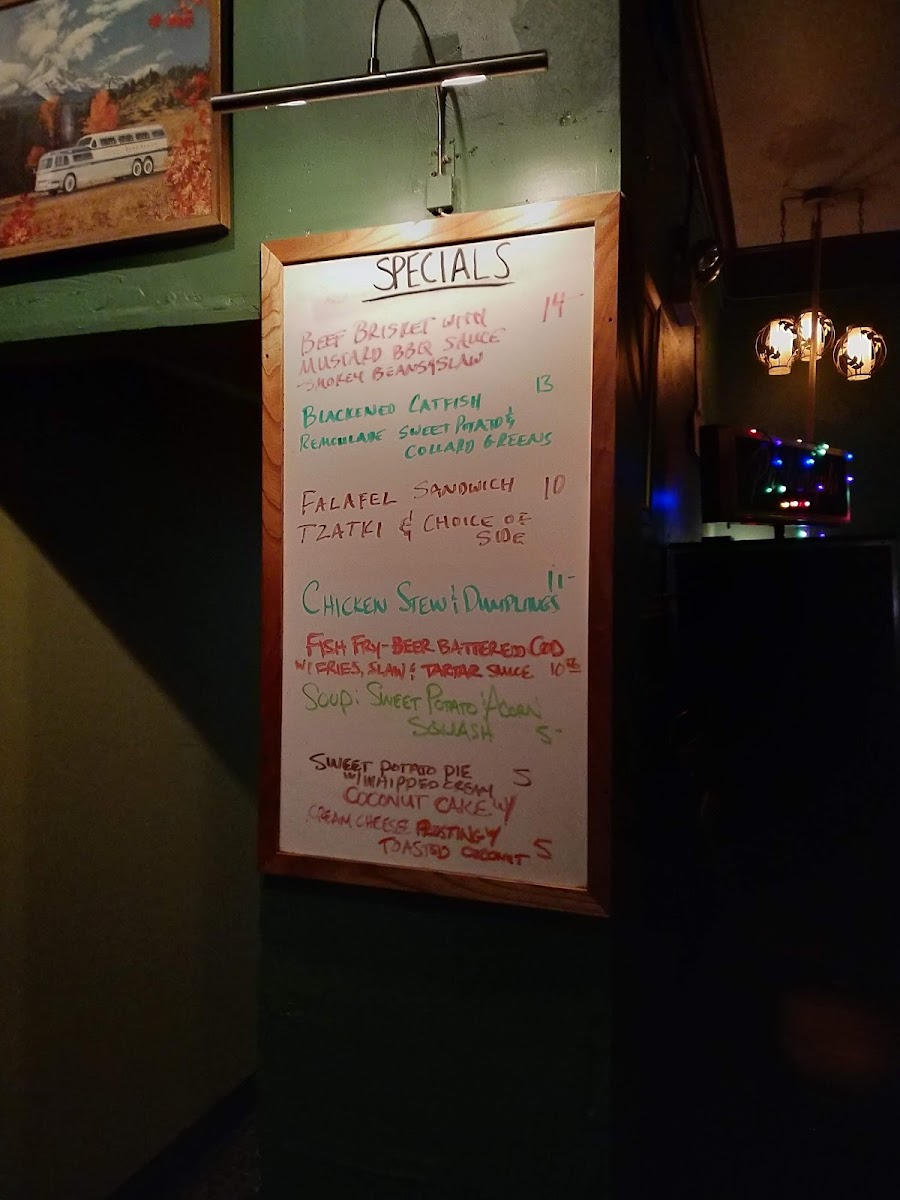 SPECIALS
BEEF BRISKET WITH 14
MUSTARD BBQ SAUCE
-SMOKEY BEANS & SLAW
BLACKENED CATFISH 13
REMOULADE SWEET POTATO &
COLLARD GREENS
FALAFEL SANDWICH 10
TZATKI & CHOICE OF
SIDE
11-
CHICKEN STEW & DUMPLINGS
FISH FRY-BEER BATTERED COD
W/ FRIES, SLAW & TARTAR SAUCE 10
SOUP: SWEET POTATO & ACORN
SQUASH 5-
SWEET POTATO PIE 5
W/ WHIPPED CREAM
COCONUT CAKE W/
CREAM CHEESE FROSTING W/
TOASTED COCONUT 5